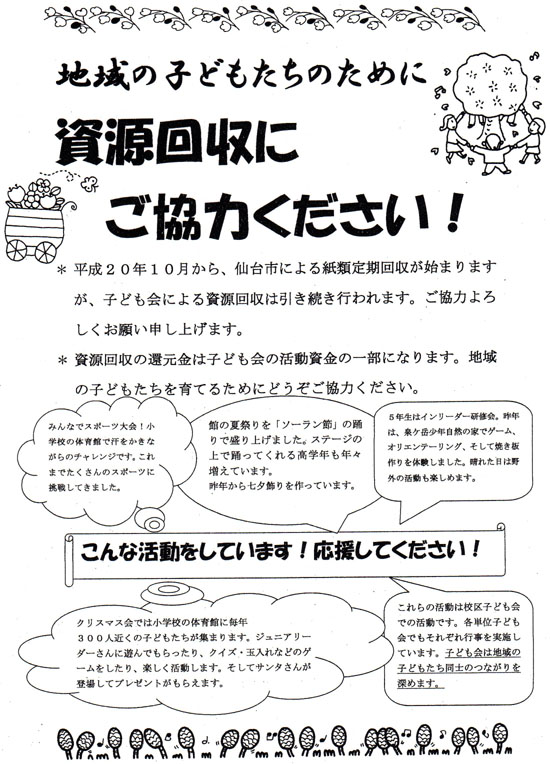 地域の子どもたちのために
資源回収に
ご協力ください！
＊ 平成２０年１０月から、仙台市による紙類定期回収が始まります
が、子ども会による資源回収は引き続き行われます。ご協力よろ
しくお願い申し上げます。
＊ 資源回収の還元金は子ども会の活動資金の一部になります。地域
の子どもたちを育てるためにどうぞご協力ください。
みんなでスポーツ大会！小
学校の体育館で汗をかきな
がらのチャレンジです。これ
までたくさんのスポーツに
挑戦してきました。
館の夏祭りを「ソーラン節」の踊
りで盛り上げました。ステージの
上で踊ってくれる高学年も年々
増えています。
昨年から七夕飾りを作っています。
５年生はインリーダー研修会。昨年
は、泉ケ岳少年自然の家でゲーム、
オリエンテーリング、そして焼き板
作りを体験しました。晴れた日は野
外の活動も楽しめます。
こんな活動をしています！応援してください！
クリスマス会では小学校の体育館に毎年
３００人近くの子どもたちが集まります。ジュニアリー
ダーさんに遊んでもらったり、クイズ・玉入れなどのゲ
ームをしたり、楽しく活動します。そしてサンタさんが
登場してプレゼントがもらえます。
これらの活動は校区子ども会
での活動です。各単位子ども
会でもそれぞれ行事を実施し
ています。子ども会は地域の
子どもたち同士のつながりを
深めます。